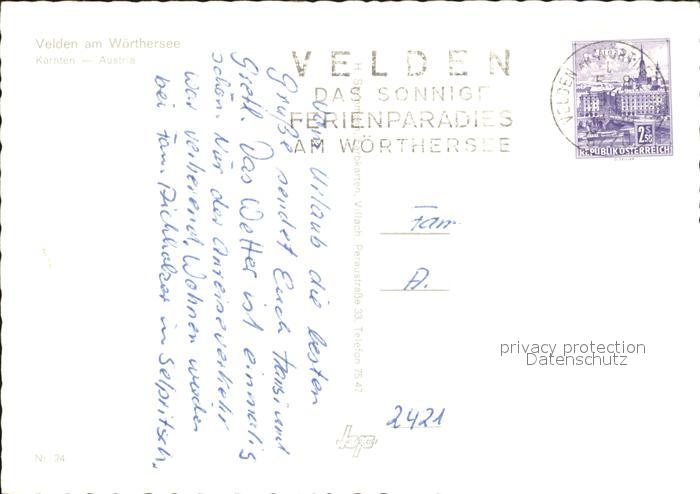 Velden am Wörthersee
Kärnten — Austria
VELDEN
DAS SONNIGE
FERIENPARADIES
AM WÖRTHERSEE
2 S 50
REPUBLIK ÖSTERREICH
Vom Urlaub die besten
Grüße sendet Euch Hansi und
Gretl. Das Wetter ist einmalig
schön. Nur der Anreiseverkehr
war verheerend. Wohnen werden
bei Fam. in Selpritsch.
Villach, Peraustraße 33, Telefon 75 47
Fam
A.
2421
privacy protection
Datenschutz
Nr. 24